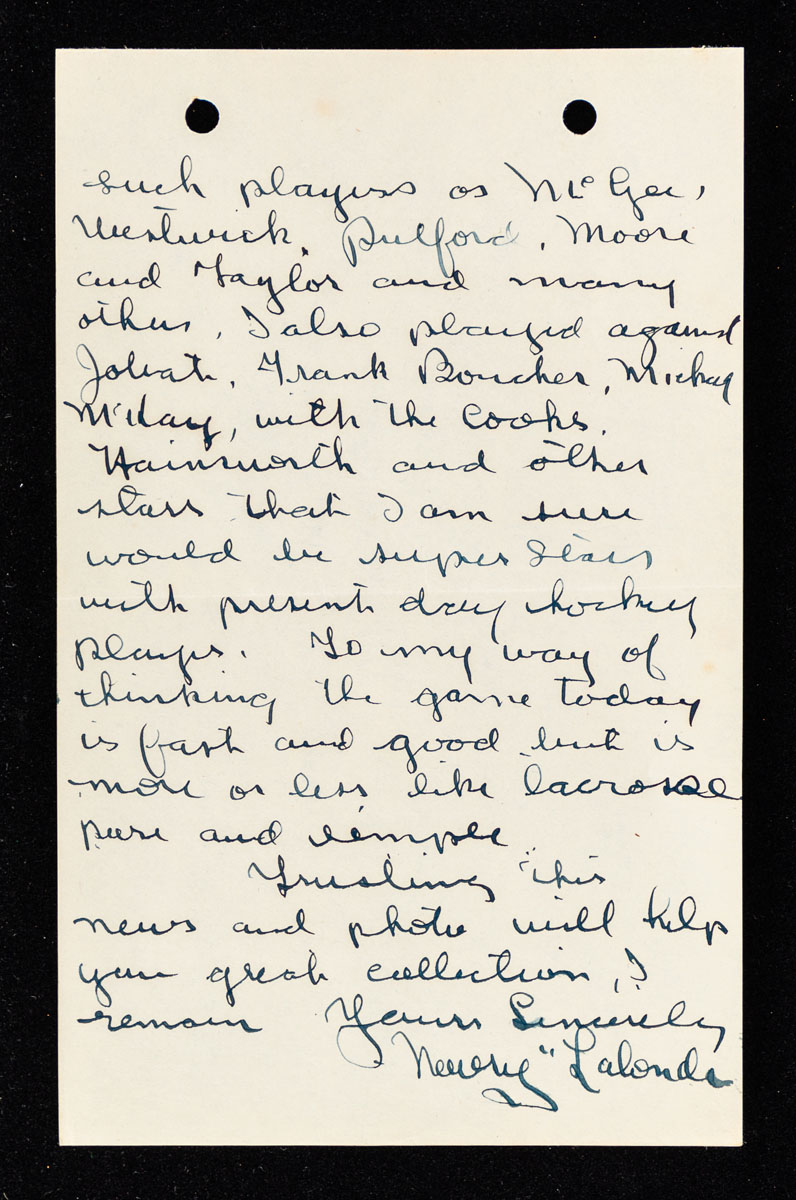 such players as McGee,
Westwick, Pulford, Moore
and Taylor and many
others, I also played against
Joliat, Frank Boucher, Mickay
McKay, with the Cooks,
Hainsworth and other
stars that I am sure
would be super stars
with present day hockey
players. To my way of
thinking the game today
is fast and good but is
more or less like lacrosse
pure and simple.
Trusting this
news and photo will help
your great collection, I
remain Yours Sincerely
"Newsy" Lalonde